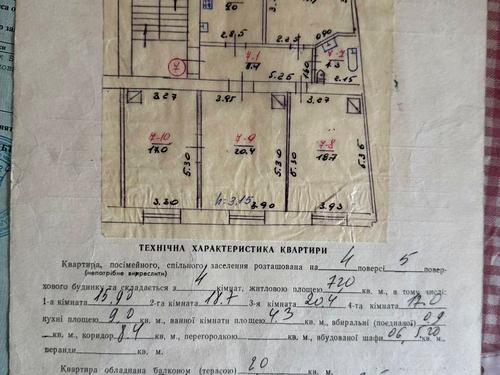 20
2.85
2.25
0.90
7-1
8.4
7-7
4.3
1.60
7
5.25
2.15
3.27
3.95
3.07
7-10
17.0
7-9
20.4
7-8
18.7
5.30
5.30
5.30
5.35
3.30
h=3.15
3.90
3.93
ТЕХНІЧНА ХАРАКТЕРИСТИКА КВАРТИРИ
Квартира, посімейного, спільного заселення розташована на 4 поверсі 5 повер-
(непотрібне викреслити)
хового будинку та складається з 4 кімнат, житловою площею 72,0 кв. м., в тому числі:
1-а кімната 15,90 2-га кімната 18.7 3-я кімната 20.4 4-та кімната 17.0
кухні площею 9.0 кв. м., ванної кімнати площею 4.3 кв. м., вбиральні (поєднаної) 0.9
кв. м., коридор 8.4 кв. м., перегородкою кв. м., вбудованої шафи 0.6 5.20
веранди кв. м.
Квартира обладнана балконом (терасою) 2.0